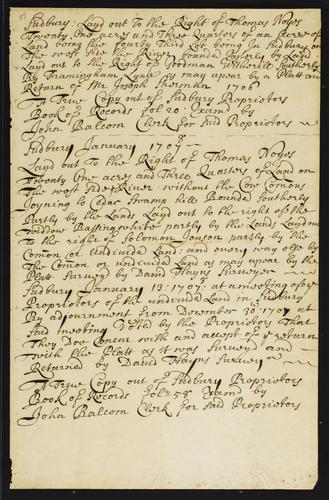 Sudbury Laid out To the Right of Thomas Noyes
Twenty One acres and Three Quarters of an acre of
Land being the fourty Third Lot being In Sudbury on
the west side the River bounded Easterly by Land
Laid out to the Right of Goodman Southerly
By Framingham Lyne as may apear by a Platt and
Return of Mr Joseph Sherman 1706
A True Copy out of Sudbury Proprietors
Book of Records fol 20 Exam'd by
John Balcom Clerk for said Proprietors
Sudbury January 1707
Laid out To the Right of Thomas Noyes
Twenty One acres and Three Quarters of Land on
the west side River without the Cow Comons
Joyning to Cedar Swamp hill Bounded Southerly
Partly by the Lands Laid out to the right of the
widdow Bassingwhite partly by the Lands Laid out
to the right of Solomon Jonson partly by the
Comon or undivided Land and every way else by
the Comon or undivided Land as may apear by the
Platt Survey'd by David Hayns Surveyer
Sudbury January 13: 1707 at a meeting of ye
Proprietors of the undivided Land in Sudbury
By adjournment from December 30: 1707 at
said meeting Voted by the Proprietors That
They Doe Concur with and accept of ye return
with the Platt as it was Survey'd and
Returned by David Hayns Survey'r
A True Copy out of Sudbury Proprietors
Book of Records fol 58 Exam'd by
John Balcom Clerk for said Proprietors